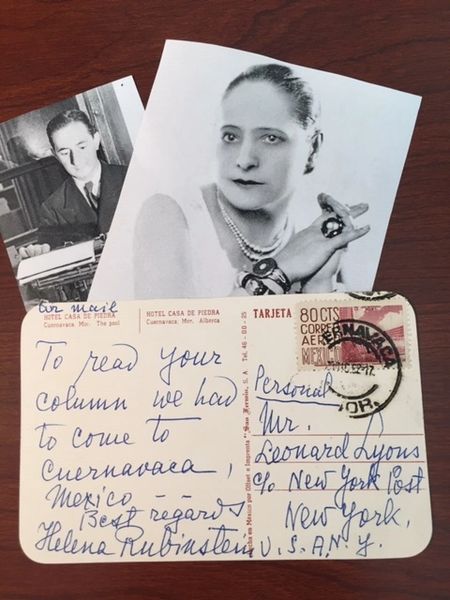 air mail
HOTEL CASA DE PIEDRA
Cuernavaca Mor. The pool
HOTEL CASA DE PIEDRA
Cuernavaca, Mor. Alberca
TARJETA
80 CTS
CORREO
AEREO
MEXICO
CUERNAVACA
MOR.
To read your
column we had
to come to
Cuernavaca,
Mexico —
Best regards
Helena Rubinstein
Tel. 46-00-25
Hecha en México por Offset e Imprenta "San Fermin" S. A.
Personal
Mr.
Leonard Lyons
c/o New York Post
New York,
U.S.A. N.Y.